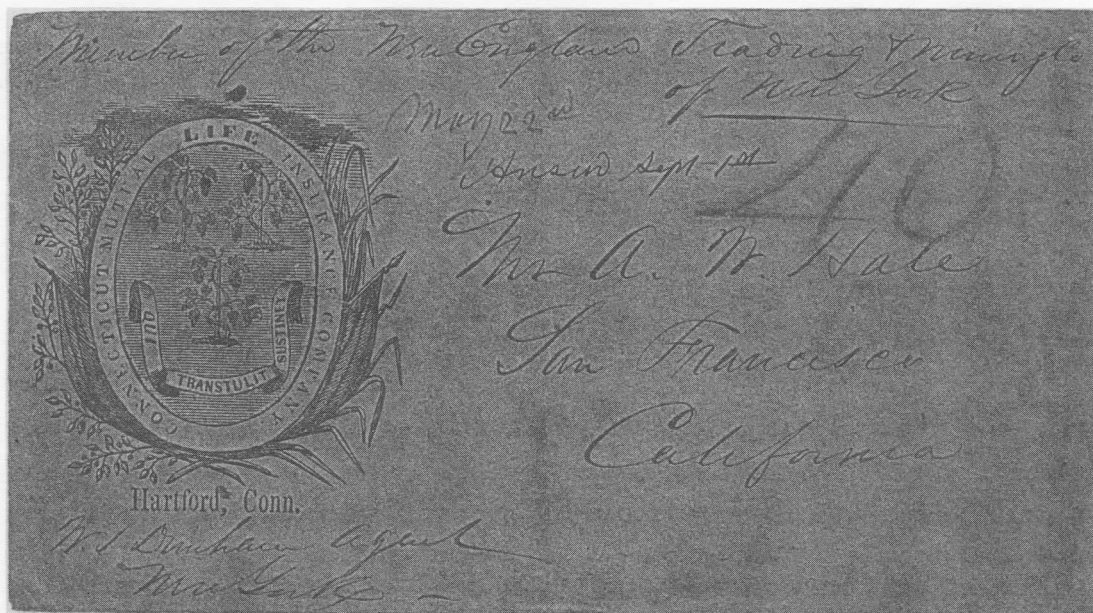 Member of the New England Trading & Mining Co
of New York
May 22nd
Answd Sept 1st
40
Mr A. W. Hale
San Francisco
California
CONNECTICUT MUTUAL LIFE INSURANCE COMPANY
QUI TRANSTULIT SUSTINET
Hartford, Conn.
Agent
New York